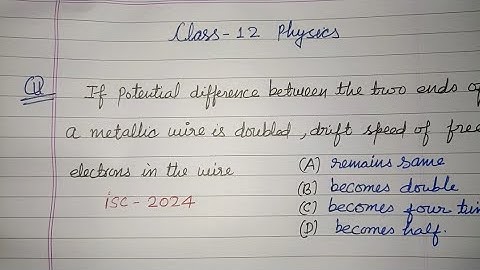 Class-12 Physics
Q If potential difference between the two ends of
a metallic wire is doubled, drift speed of free
electrons in the wire
(A) remains same
(B) becomes double
isc-2024
(C) becomes four
(D) becomes half.